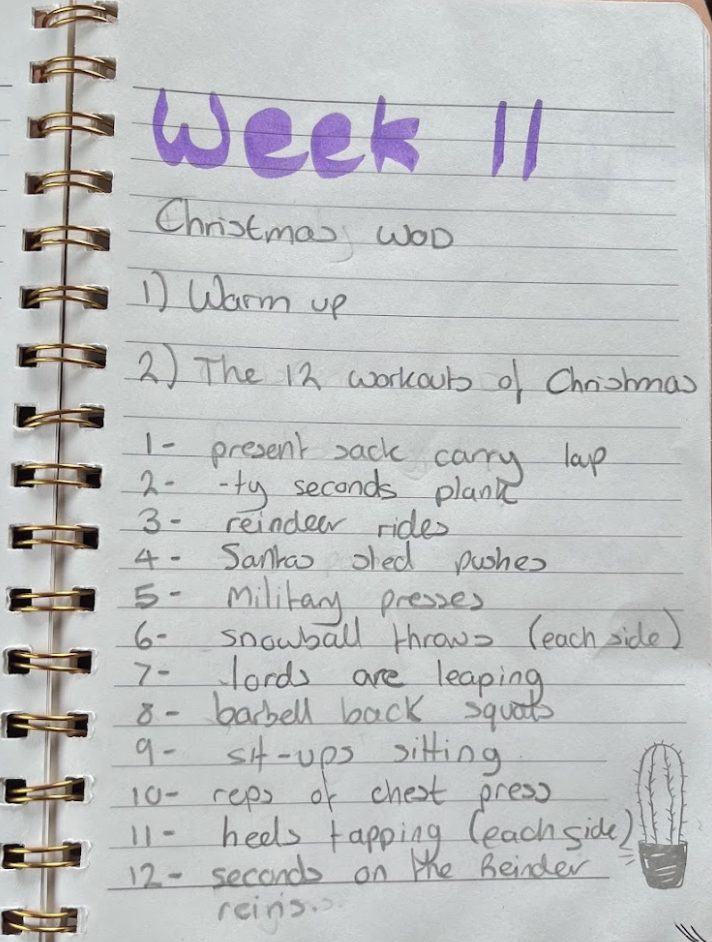 Week 11
Christmas WOD
1) Warm up
2) The 12 workouts of Christmas
1- present sack carry lap
2- -ty seconds plank
3- reindeer rides
4- Santas sled pushes
5- Military presses
6- snowball throws (each side)
7- lords are leaping
8- barbell back squats
9- sit-ups sitting
10- reps of chest press
11- heels tapping (each side)
12- seconds on the Reinder
reins.